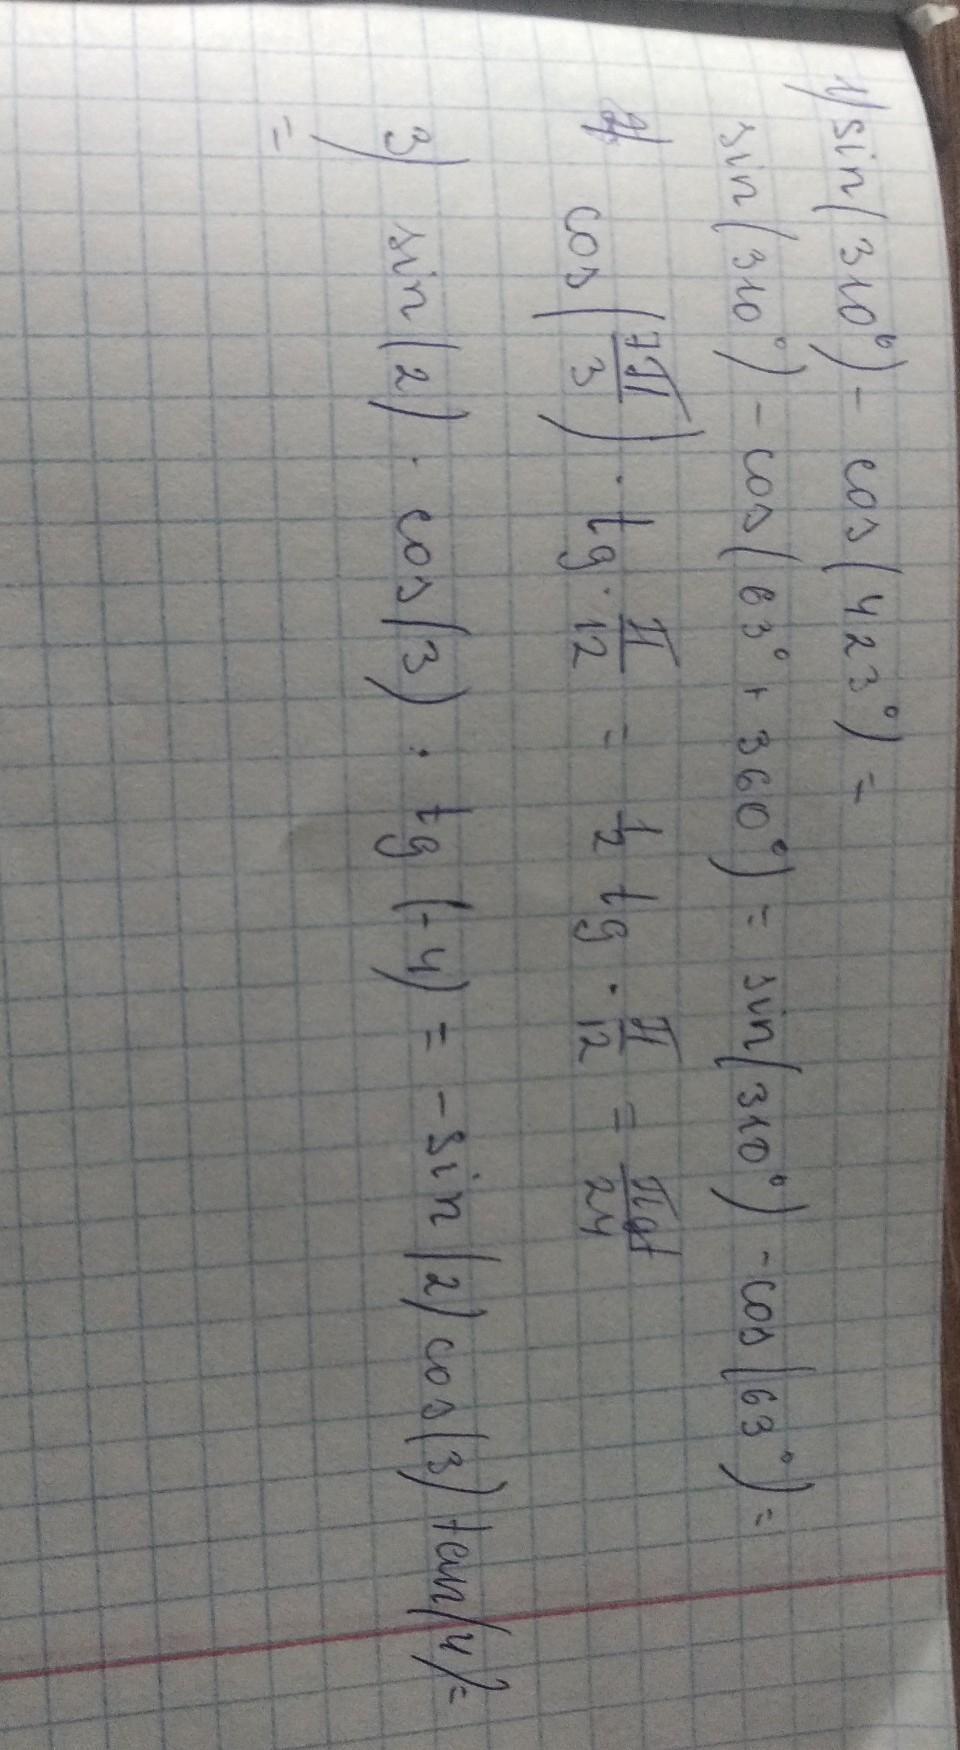 1) sin(310°) - cos(423°) =
sin(310°) - cos(63° + 360°) = sin(310°) - cos(63°) =
2) cos(7π/3) · tg · π/12 = 1/2 tg · π/12 = πgt/24
3) sin(2) · cos(3) : tg(-4) = -sin(2) cos(3) tan(4) =
=